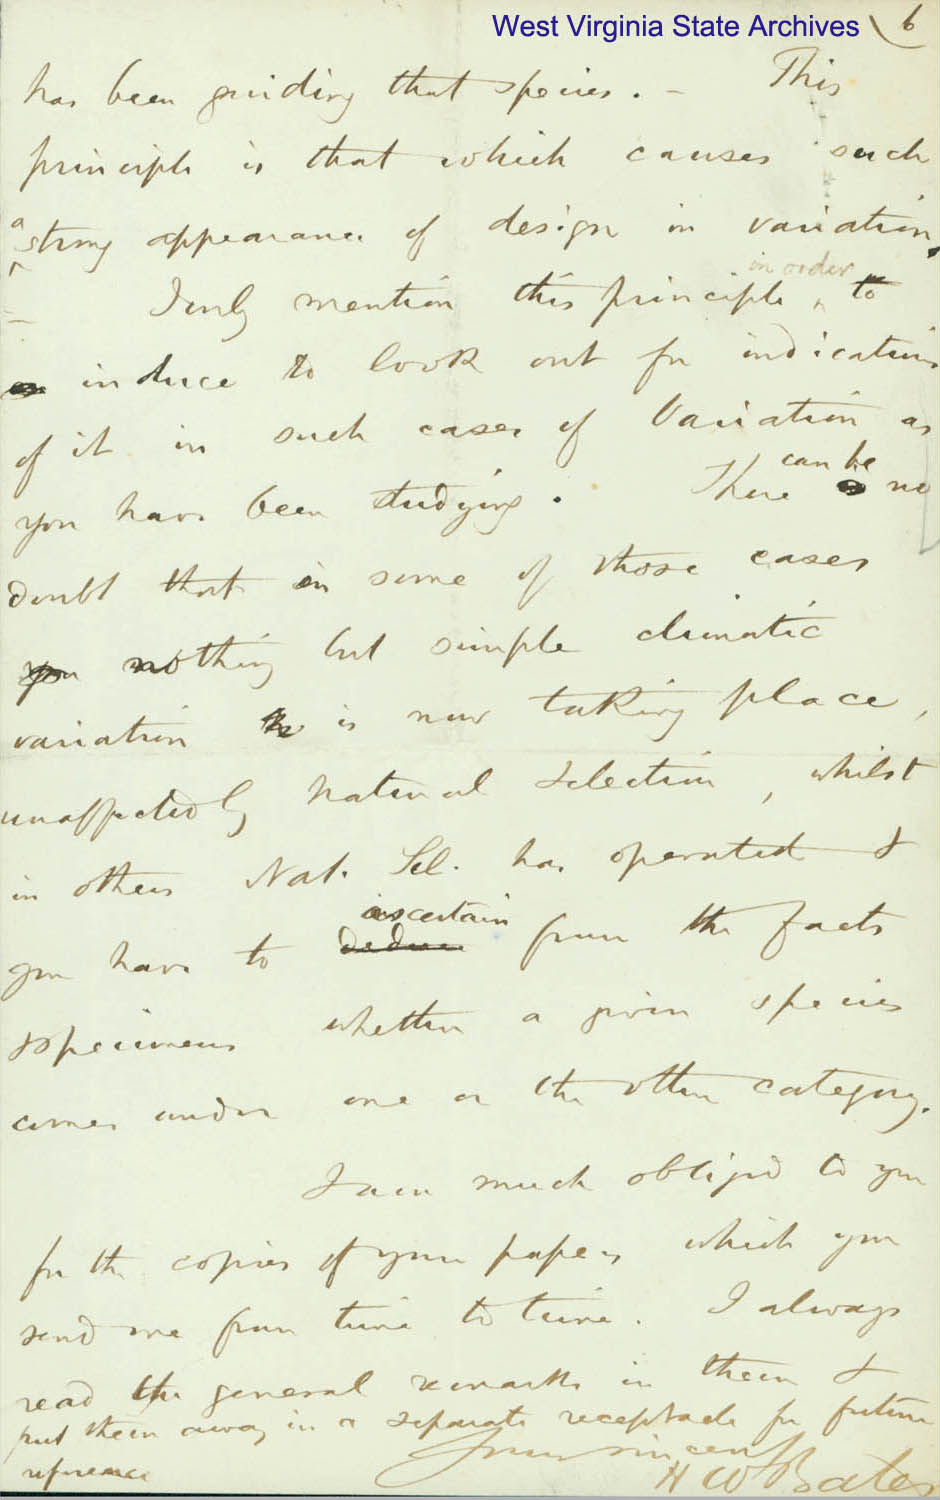 West Virginia State Archives
6
has been guiding that species. – This
principle is that which causes such
a strong appearance of design in variation.
I only mention this principle, in order to
induce to look out for indications
of it in such cases of Variation as
you have been studying. There can be no
doubt that in some of those cases
nothing but simple climatic
variation is now taking place,
unaffected by natural selection, whilst
in others Nat. Sel. has operated &
you have to deduce ascertain from the facts
& specimens whether a given species
comes under one or the other category.
I am much obliged to you
for the copies of your papers which you
send me from time to time. I always
read the general remarks in them &
put them away in a separate receptacle for future
reference
Yours sincerely
H W Bates